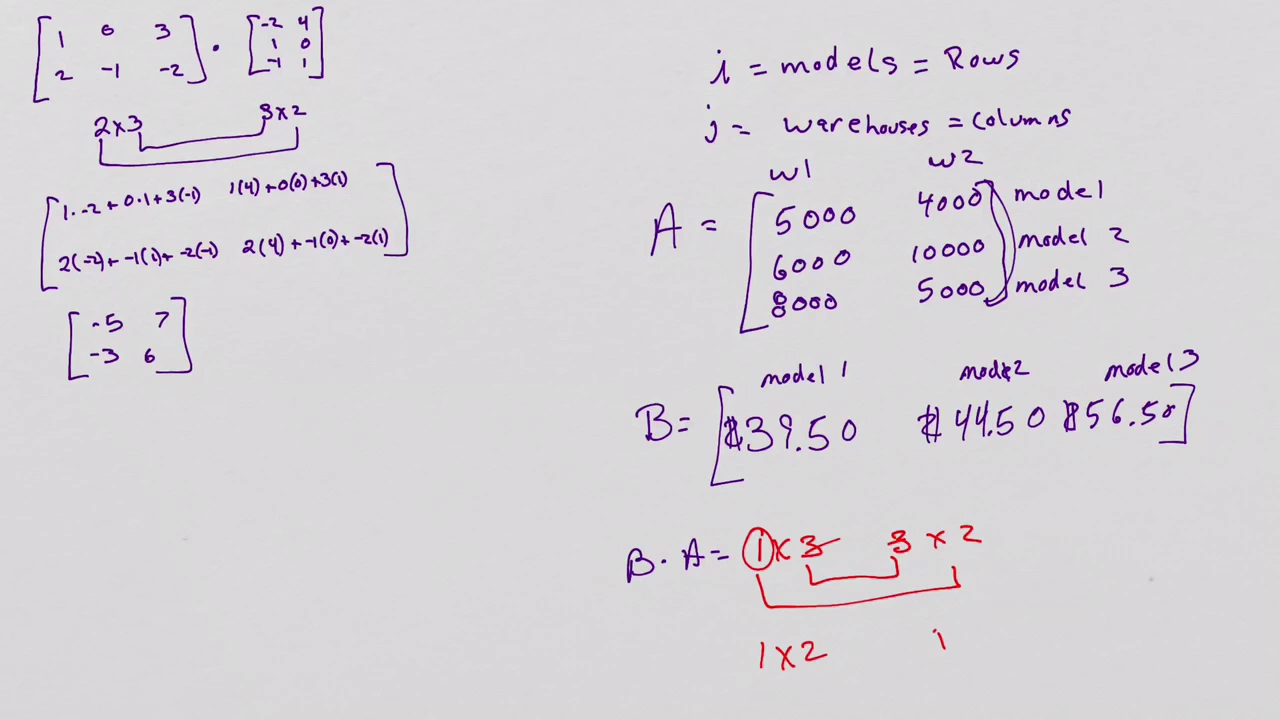 1 0 3 · -2 4
2 -1 -2 1 0
-1 1
2x3 3x2
1·-2 + 0·1 + 3(-1) 1(4) + 0(0) + 3(1)
2(-2) + -1(1) + -2(-1) 2(4) + -1(0) + -2(1)
-5 7
-3 6
i = models = Rows
j = warehouses = Columns
w1 w2
A = 5000 4000 model 1
6000 10000 model 2
8000 5000 model 3
model 1 model 2 model 3
B = [$39.50 $44.50 $56.50]
B · A = 1x3 3x2
1x2 i